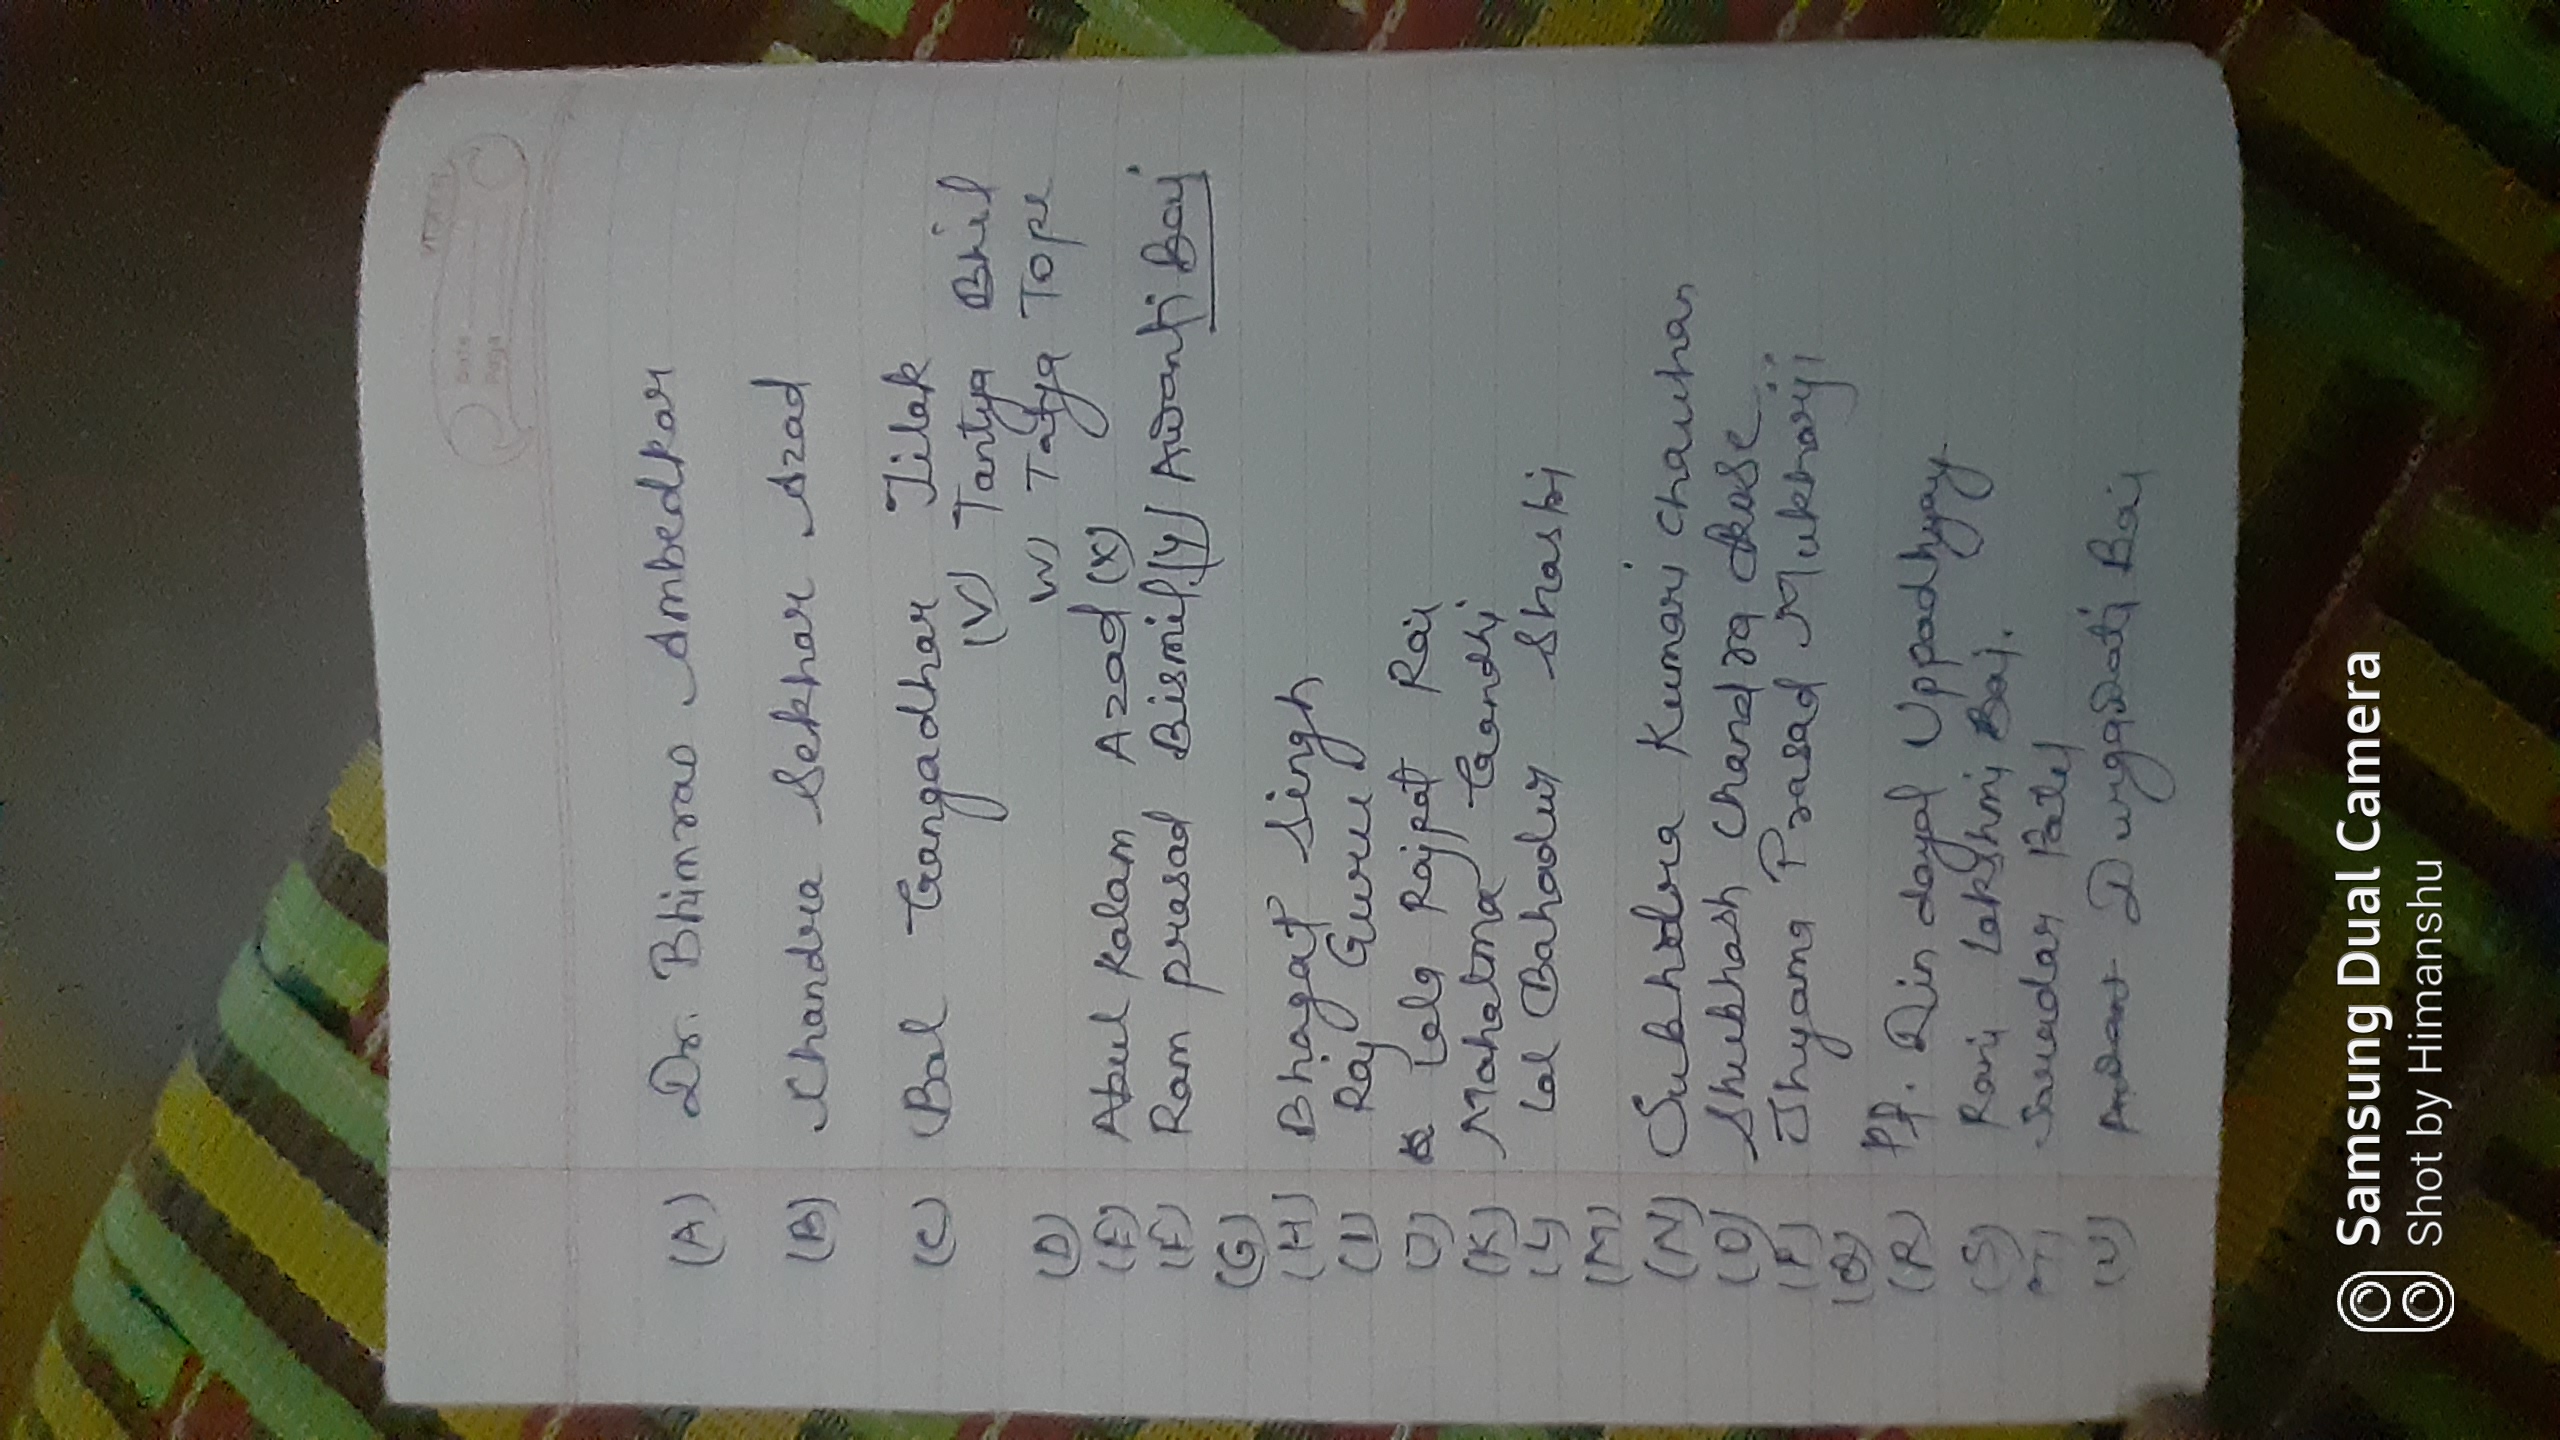 Date
Page
(A) Dr. Bhimrao Ambedkar
(B) Chandra Sekhar Azad
(C) Bal Gangadhar Tilak
(V) Tantya Bhil
(D) W) Tatya Tope
(E) Abul Kalam Azad (X)
(F) Ram prasad Bismil (Y) Awanti Bai
(G)
(H) Bhagat Singh
(I) Raj Guru
(J) Lala Rajpat Rai
(K) Mahatma Gandhi
(L) Lal Bahadur Shastri
(M)
(N) Subhdra Kumari Chauhan
(O) Shubhash Chandra Bose
(P) Shyama Prasad Mukharji
(Q)
(R) Pt. Din dayal Uppadhyay
(S) Rani Lakshmi Bai.
(T) Saradar Patel
(U) Durgawati Bai
Samsung Dual Camera
Shot by Himanshu